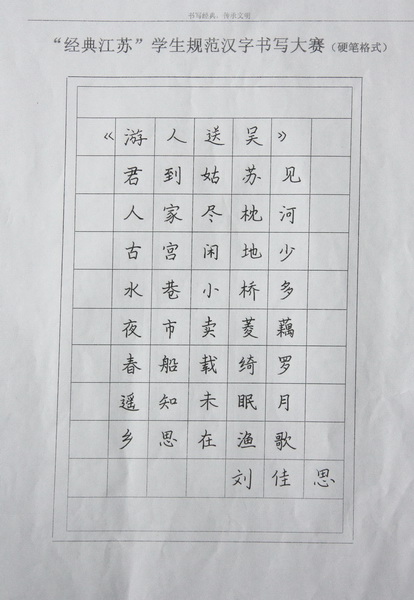 书写经典，传承文明
“经典江苏”学生规范汉字书写大赛（硬笔格式）
《游人送吴》
君到姑苏见
人家尽枕河
古宫闲地少
水巷小桥多
夜市卖菱藕
春船载绮罗
遥知未眠月
乡思在渔歌
刘佳思